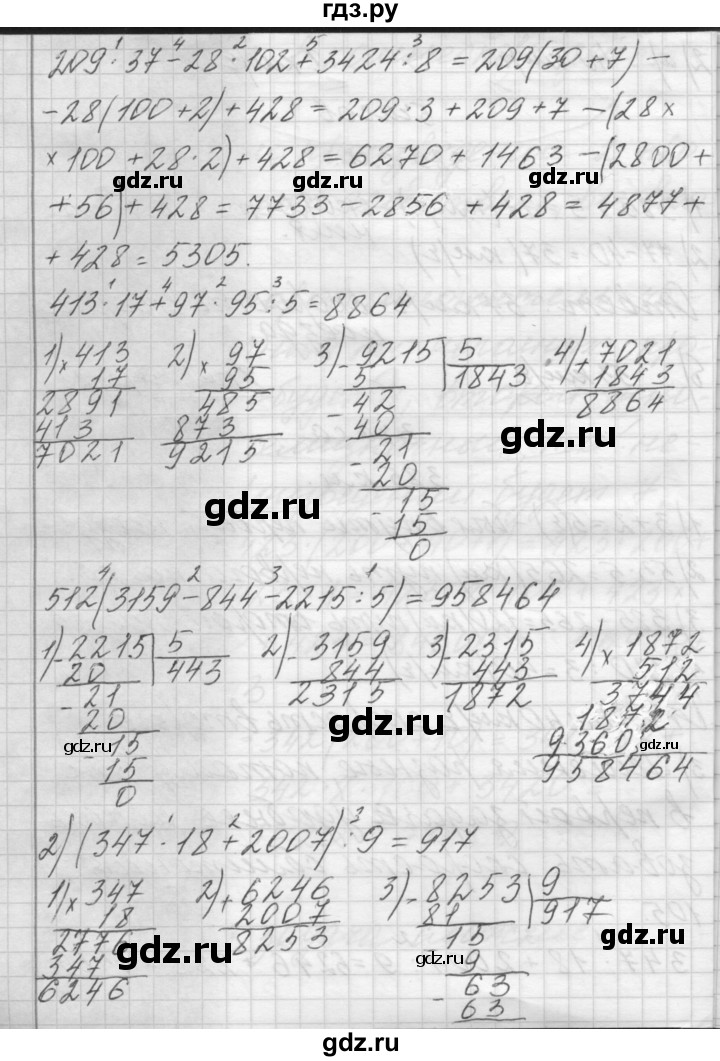 гдз.ру
209 · 37 - 28 · 102 + 3424 : 8 = 209(30 + 7) -
- 28(100 + 2) + 428 = 209 · 3 + 209 + 7 - (28 ×
× 100 + 28 · 2) + 428 = 6270 + 1463 - (2800 +
gdz.ru gdz.ru gdz.ru
+ 56) + 428 = 7733 - 2856 + 428 = 4877 +
+ 428 = 5305.
413 · 17 + 97 · 95 : 5 = 8864
1) × 413 2) × 97 3) - 9215 | 5 4) + 7021
17 95 5 1843 1843
2891 485 - 42 8864
413 873 40
7021 9215 - 21
gdz.ru
20
gdz.ru
- 15
15
0
512(3159 - 844 - 2215 : 5) = 958464
1) - 2215 | 5 2) - 3159 3) - 2315 4) × 1872
20 443 844 443 512
- 21 2315 1872 3744
20 1872
gdz.ru gdz.ru
- 15 9360 gdz.ru
15 958464
0
2) (347 · 18 + 2007) : 9 = 917
1) × 347 2) + 6246 3) - 8253 | 9
18 2007 81 917
2776 8253 15
gdz.ru gdz.ru gdz.ru
347 9
6246 - 63
63
gdz.ru